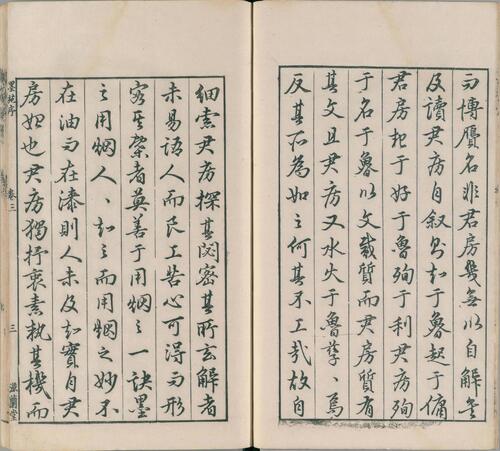 而博贋名非君房幾無以自解
及讀君房自叙乃知于魯起于傭
君房起于好于魯殉于利君房殉
于名于魯以文質而君房質有
其文且君房又水火于魯孽、焉
反其所為如之何其不工哉故自
細索君房探其閟密其所玄解者
未易語人而良工苦心可得而形
容其槩者莫善于用烟之一訣墨
之用烟人、知之而用烟之妙不
在油而在漆則人未及知實自君
房始也君房獨抒衷素執其機而
墨苑序 卷三 三 滋蘭堂